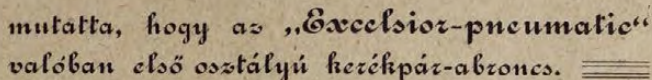 mutatta, hogy az „Excelsior-pneumatic“
valóban első osztályú kerékpár-abroncs.